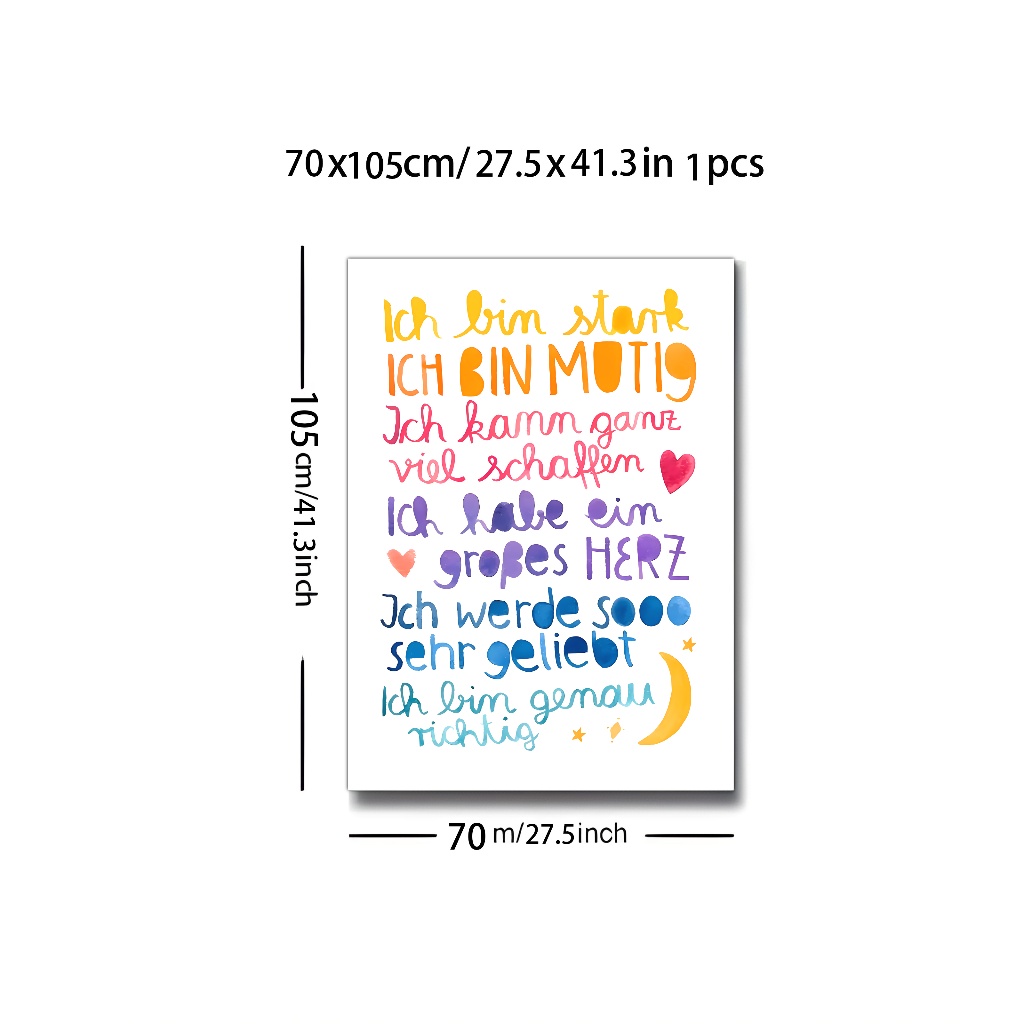 70x105cm/27.5x41.3in 1pcs
105cm/41.3inch
Ich bin stark
ICH BIN MUTIg
Ich kann ganz
viel schaffen
Ich habe ein
großes HERZ
Ich werde sooo
sehr geliebt
Ich bin genau
richtig
70 m/27.5inch